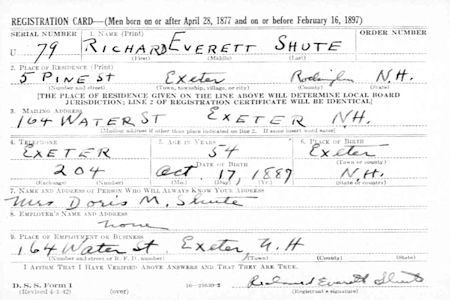 REGISTRATION CARD—(Men born on or after April 28, 1877 and on or before February 16, 1897)
SERIAL NUMBER 1. NAME (Print) ORDER NUMBER
U 79 RICHARD EVERETT SHUTE
(First) (Middle) (Last)
2. PLACE OF RESIDENCE (Print)
5 PINE ST Exeter Rockingham N.H.
(Number and street) (Town, township, village, or city) (County) (State)
[THE PLACE OF RESIDENCE GIVEN ON THE LINE ABOVE WILL DETERMINE LOCAL BOARD
JURISDICTION; LINE 2 OF REGISTRATION CERTIFICATE WILL BE IDENTICAL]
3. MAILING ADDRESS
164 WATER ST EXETER N.H.
[Mailing address if other than place indicated on line 2. If same insert word same]
4. TELEPHONE 5. AGE IN YEARS 6. PLACE OF BIRTH
EXETER 54 Exeter
DATE OF BIRTH (Town or county)
204 Oct. 17, 1887 N.H.
(Exchange) (Number) (Mo.) (Day) (Yr.) (State or country)
7. NAME AND ADDRESS OF PERSON WHO WILL ALWAYS KNOW YOUR ADDRESS
Mrs Doris M. Shute
8. EMPLOYER'S NAME AND ADDRESS
none
9. PLACE OF EMPLOYMENT OR BUSINESS
164 Water St Exeter, N.H
(Number and street or R. F. D. number) (Town) (County) (State)
I AFFIRM THAT I HAVE VERIFIED ABOVE ANSWERS AND THAT THEY ARE TRUE.
D. S. S. Form 1 Richard Everett Shute
(Revised 4-1-42) (over) (Registrant's signature)